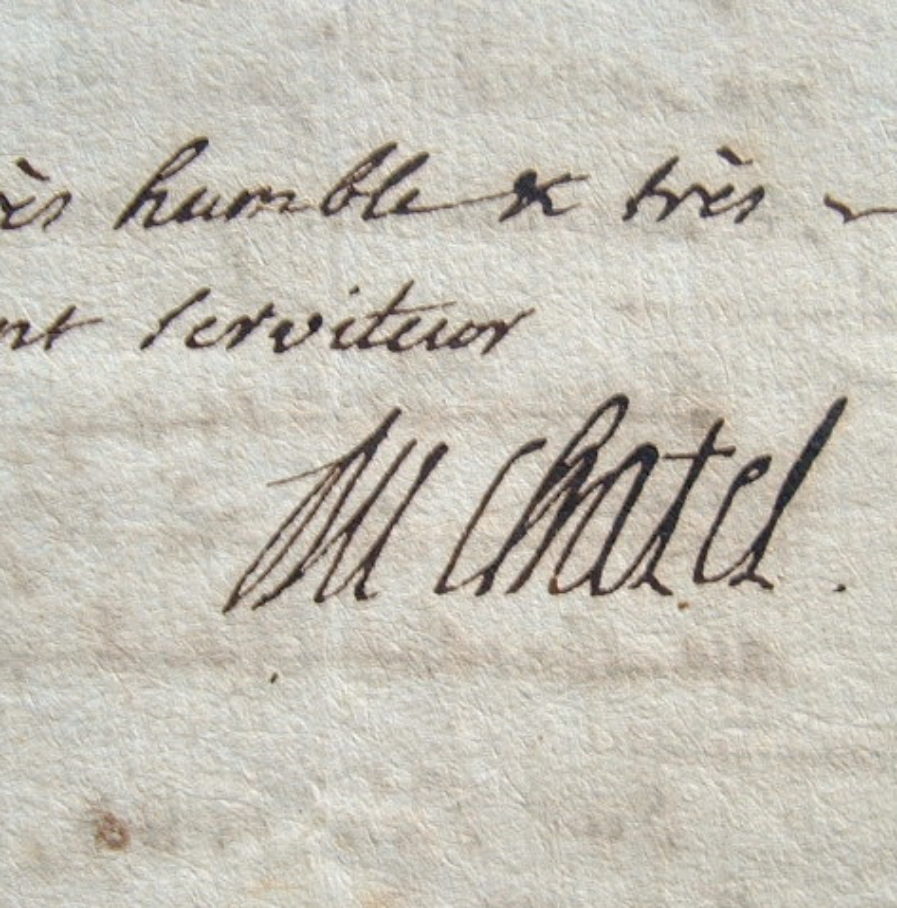 ès humble & très
nt serviteur
Du chatel.